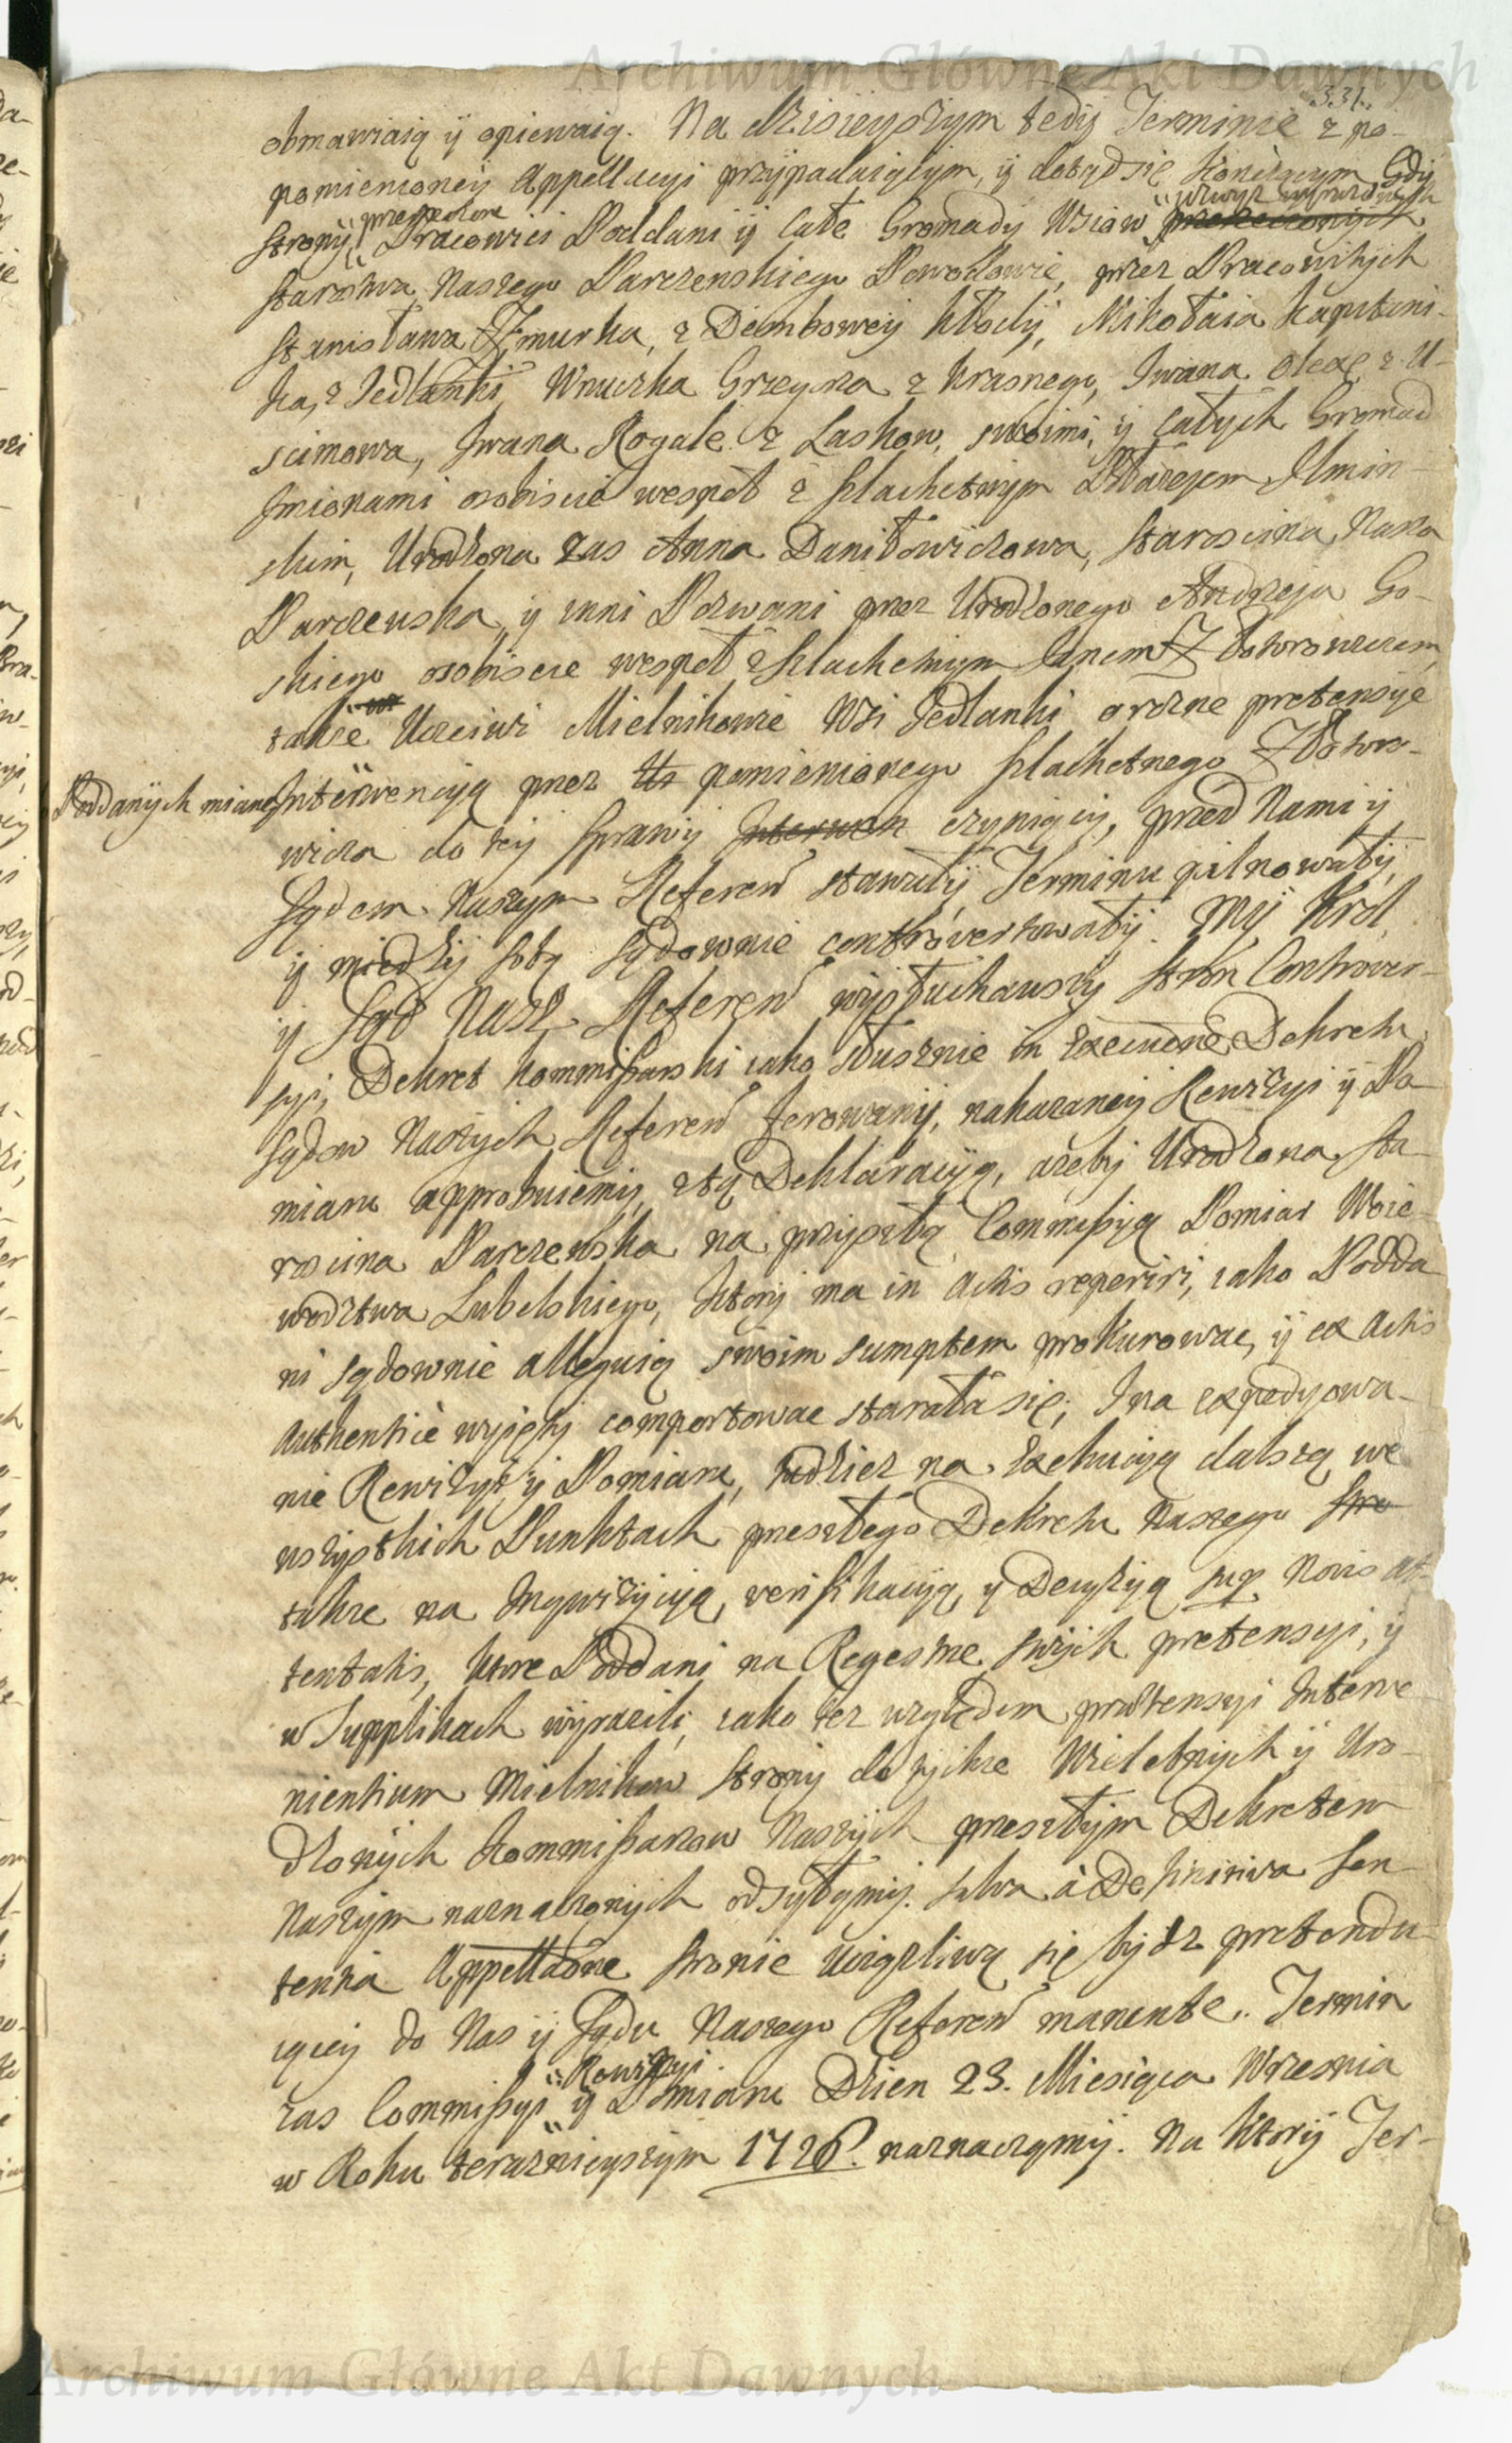 Archiwum Główne Akt Dawnych
331.
obmawiaią ÿ opiewaią. Na dzisieyszym tedÿ Terminie z po-
pomienioneÿ Appellacyi przÿpadaiącÿm, ÿ dotąd się kończącym Gdÿ
przerzeczone wzwyż wyrażonych
Stronÿ Pracowici Poddani ÿ całe Gromadÿ Wsiow przerzeczonÿch
Starostwa Naszego Parczewskiego Powodowie, przez Pracowitÿch
Stanisława Żmurka, z Dembowey Kłodÿ, Mikołaia Kapitani-
ka, z Jedlanki, Wnuczka Grzegorza z Krasnego, Iwana Olexę z U-
scimowa, Iwana Rogale z Laskow, swoimi, ÿ całÿch Gromad
Imionami osobiscie wespoł z Szlachetnÿm Błażejem Ilmin-
skim, Urodzona zas Anna Daniłowiczowa, Staroscina Nasza
Parczewska, ÿ inni Pozwani przez Urodzonego Andrzeja Go-
skiego osobiscie wespoł z Szlachetnÿm Janem Zdotowiczem,
także Uczciwi Mielnikowie Wsi Jedlanki o rożne pretensÿe
Poddanÿch miane Interwencÿą przez Ur pomienionego Szlachetnego
wicza do teÿ Sprawÿ Interwen czyniącÿ, przed Nami ÿ
Sądem Naszym Referen stawałÿ Terminu pilnowałÿ,
ÿ międzÿ sobą sądownie controvertowałÿ. Mÿ Krol
ÿ Sąd Nasz Referen wÿsłuchawszÿ Stron Contrower-
syi, Dekret Kommissarski iako słusznie in Executione Dekretu
Sądow Naszÿch Referen ferowanÿ, nakazaneÿ Rewizyi ÿ Po-
miaru approbuiemÿ, z tą Deklaracÿą, ażebÿ Urodzona Sta-
roscina Parczewska na przyszłą Commissÿą Pomiar Woie-
wodztwa Lubelskiego, ktorÿ ma in Actis reperiri, iako Podda-
ni sądownie alleguią swoim sumptem prokurowac, ÿ ex Actis
Authentice wyjętÿ comportowac starała się; I na expedyowa-
nie Rewizyi ÿ Pomiaru, tudziez na Exekucÿą dalszą we
wszÿstkich Punktach przeszłego Dekretu Naszego
także na Inqwizÿcÿą, verifikacÿą, ÿ Decyzÿą sup Novis at-
tentatis, ktore Poddani na Regestrze swÿch pretensyi, ÿ
w Supplikach wÿrazili, iako też względem prætensyi Interve-
nientium Mielnikow Stronÿ do tÿchże Wielebnÿch ÿ Uro-
dzonÿch Kommissarzow Naszÿch przeszłÿm Dekretem
Naszÿm naznaczonÿch odsyłamÿ. Salva à Definitiva Sen-
tentia Appellatione Stronie uciążliwą się bÿdz pretendu-
iąceÿ do Nas ÿ Sądu Naszego Referen manente. Termin
Rewizyi
zas Commissyi ÿ Pomiaru Dzien 23. Miesiąca Wrzesnia
w Roku teraznieyszÿm 1726. naznaczamÿ. Na ktorÿ Ter-
Archiwum Główne Akt Dawnych